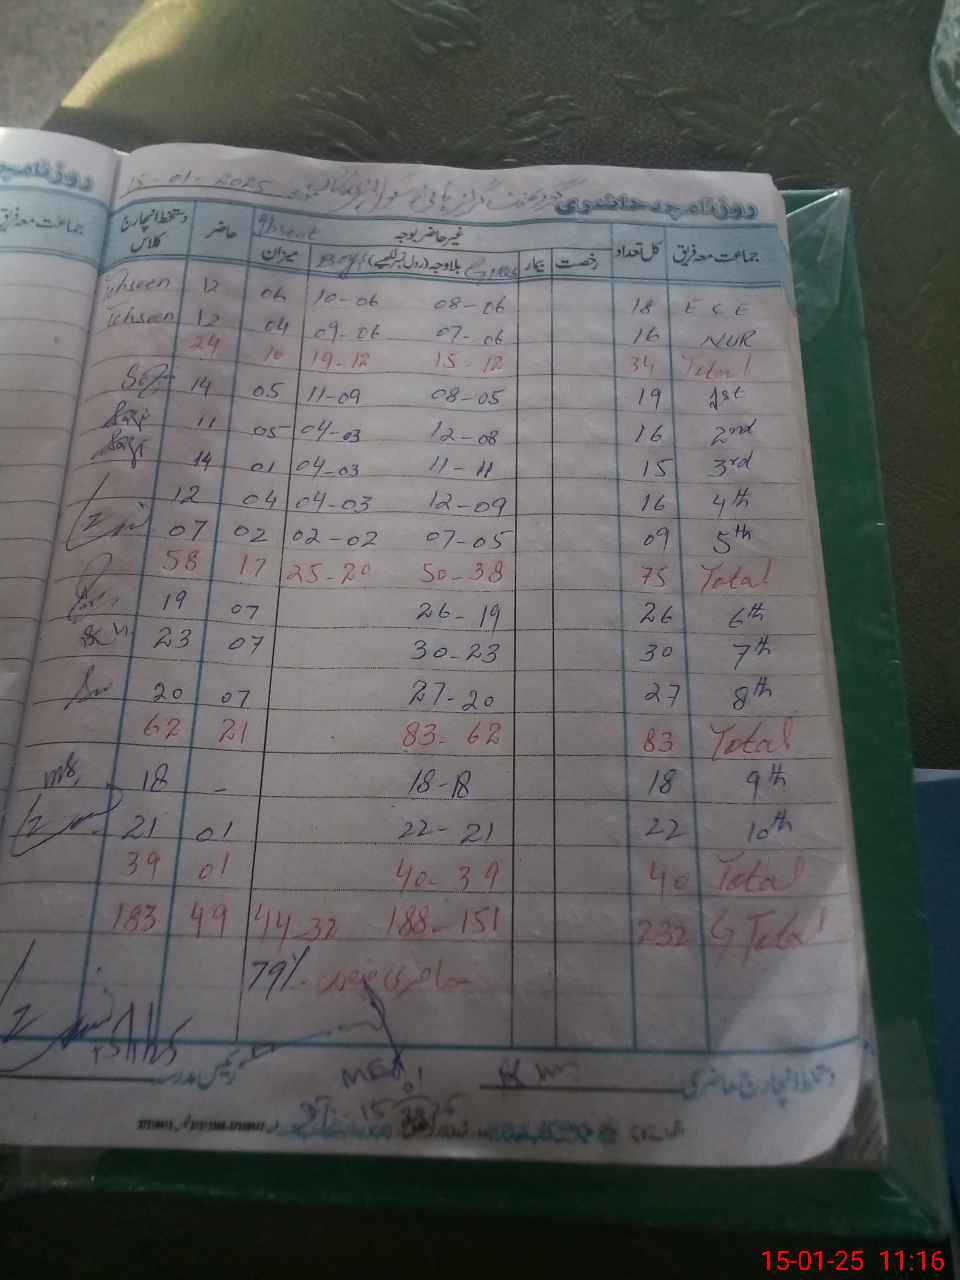 روزنامچہ حاضری گورنمنٹ گرلز ہائی سکول 15-01-2025
جماعت معہ فریق کل تعداد غیر حاضر بوجہ Absent حاضر دستخط انچارج کلاس
رخصت بیمار Girls بلاوجہ (رول نمبر لکھیے) Boys میزان
E C E 18 08-06 10-06 06 12 Tehseen
NUR 16 07-06 09-06 04 12 Tehseen
Total 34 15-12 19-12 10 24
1st 19 08-05 11-09 05 14
2nd 16 12-08 04-03 05 11
3rd 15 11-11 04-03 01 14
4th 16 12-09 04-03 04 12
5th 09 07-05 02-02 02 07
Total 75 50-38 25-20 17 58
6th 26 26-19 07 19
7th 30 30-23 07 23
8th 27 27-20 07 20
Total 83 83-62 21 62
9th 18 18-18 - 18
10th 22 22-21 01 21
Total 40 40-39 01 39
G Total 232 188-151 44-32 49 183
حاضری فیصد 79%
دستخط انچارج حاضری رئیس مدرسہ
روزنامچہ
جماعت معہ فریق
15-01-25 11:16